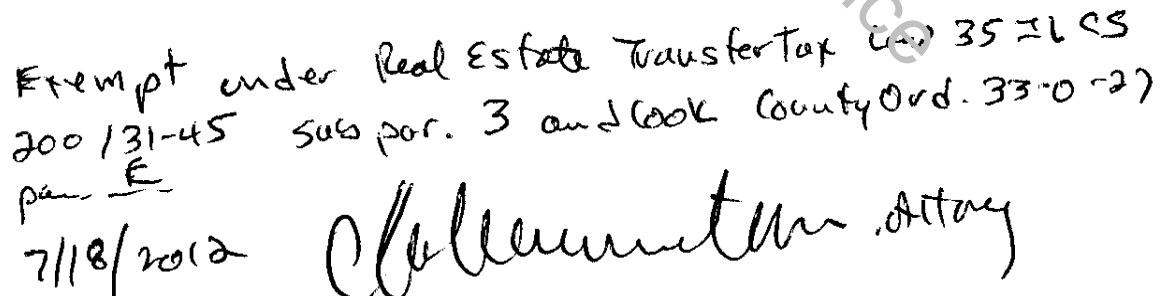 Exempt under Real Estate Transfer Tax Law 35 ILCS
200/31-45 sub par. 3 and Cook County Ord. 33-0-27
par. E
7/18/2012 , Attorney